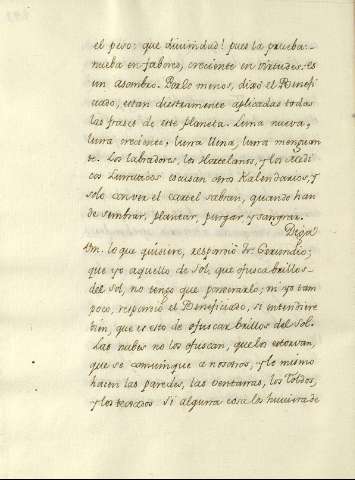 el peso: que divinidad! pues la prueba:
nueba en fabores, creciente en virtudes. es
un asombro. Porlo menos, dixo el Benefi
ciado, estan diestramente aplicadas todas
las frases de este planeta. Luna nueva,
luna creciente, luna llena, luna menguan
te. Los labradores, los Hortelanos, y los Medi
cos Lunarios escusan otros Kalendarios, y
solo con ver el cartel sabran, quando han
de sembrar, plantar, purgar y sangrar.
Diga
Vm. lo que quisiere, respondió fr. Gerundio;
que yo aquello de sol, que ofusca brillos
del sol, no tengo que ponerarlo; ni yo tam
poco, respondió el Beneficiado, si entendiere
bien, que es esto de ofuscar brillos del sol.
Las nubes no los ofuscan, que los estorvan,
que se comuniquen a nosotros; y lo mismo
hacen las paredes, las ventanas, los Toldos,
y los texados si alguna cosa los huviera de